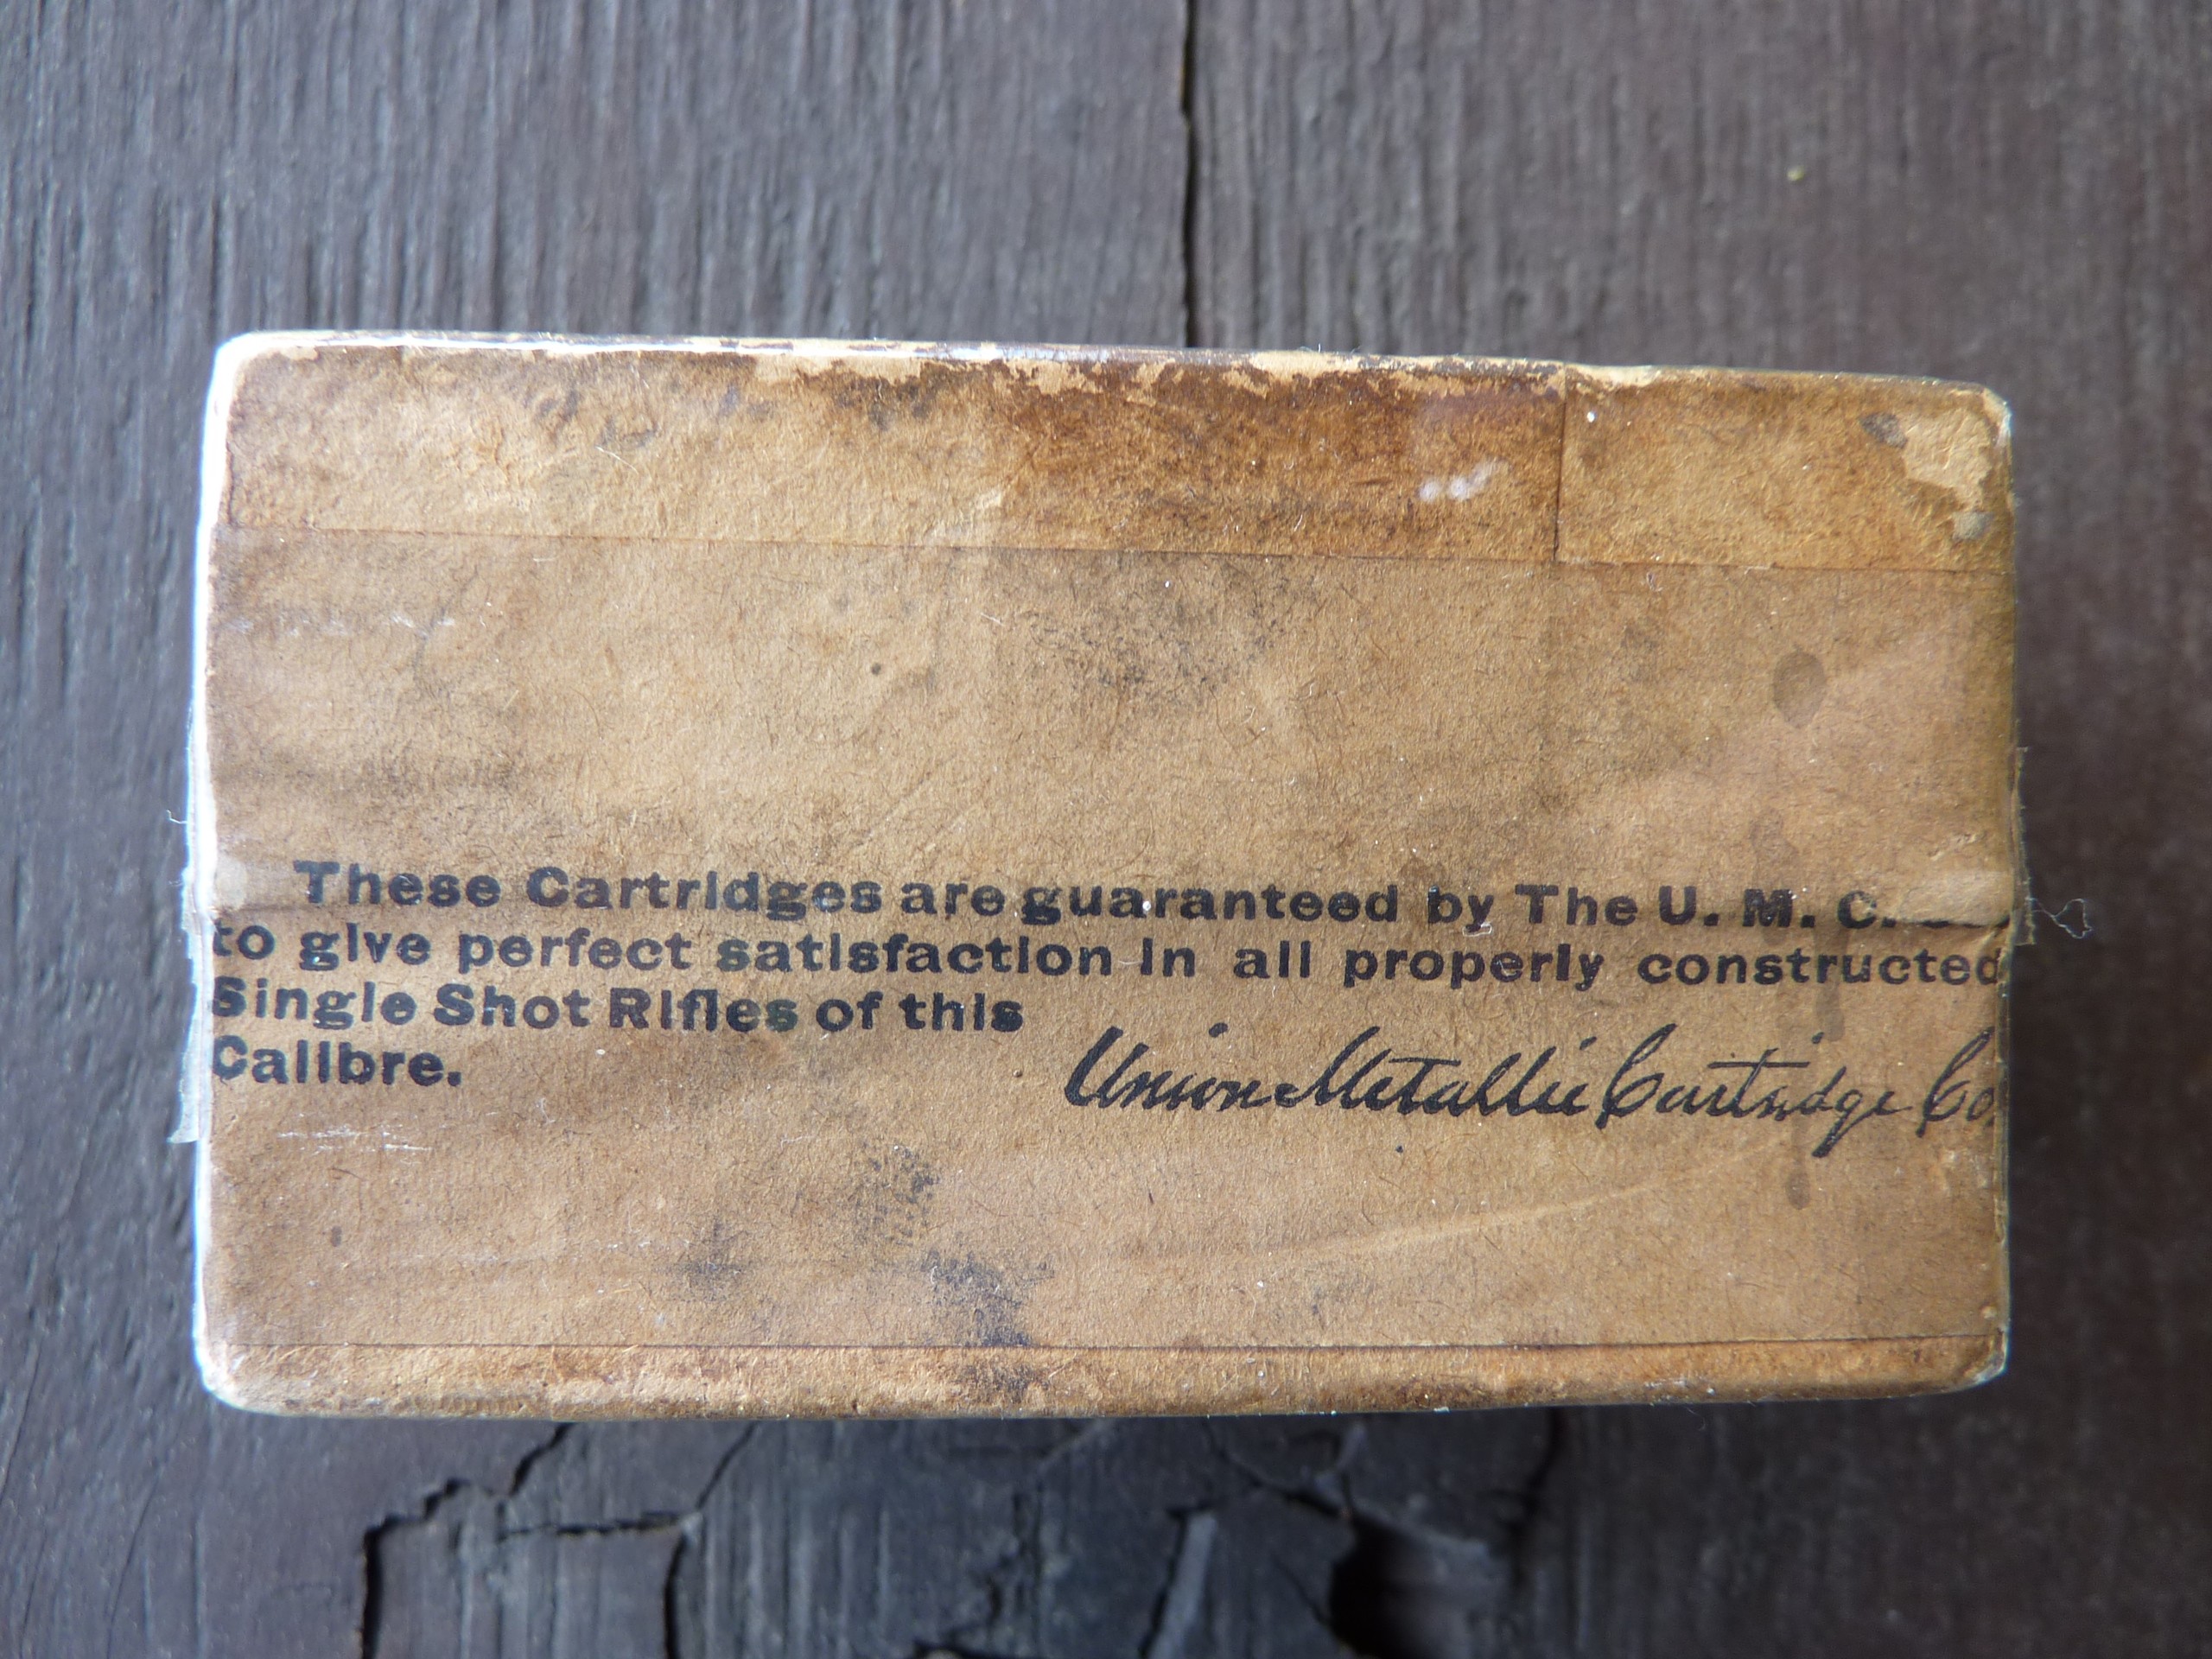 These Cartridges are guaranteed by The U. M. C.
to give perfect satisfaction in all properly constructed
Single Shot Rifles of this
Calibre.
Union Metallic Cartridge Co.